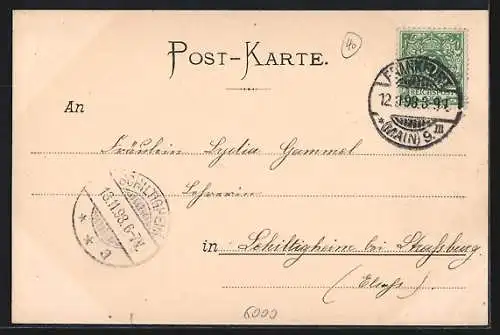 40
POST-KARTE.
REICHSPOST
FRANKFURT
12.11.98.8-9N.
* (MAIN) 9. III
An
Fräulein Lydia Gammel
Lehrerin
SCHILTIGHEIM
13.11.98.6-7V.
* * a
in Schiltigheim bei Straßburg.
(Elsaß)
6000